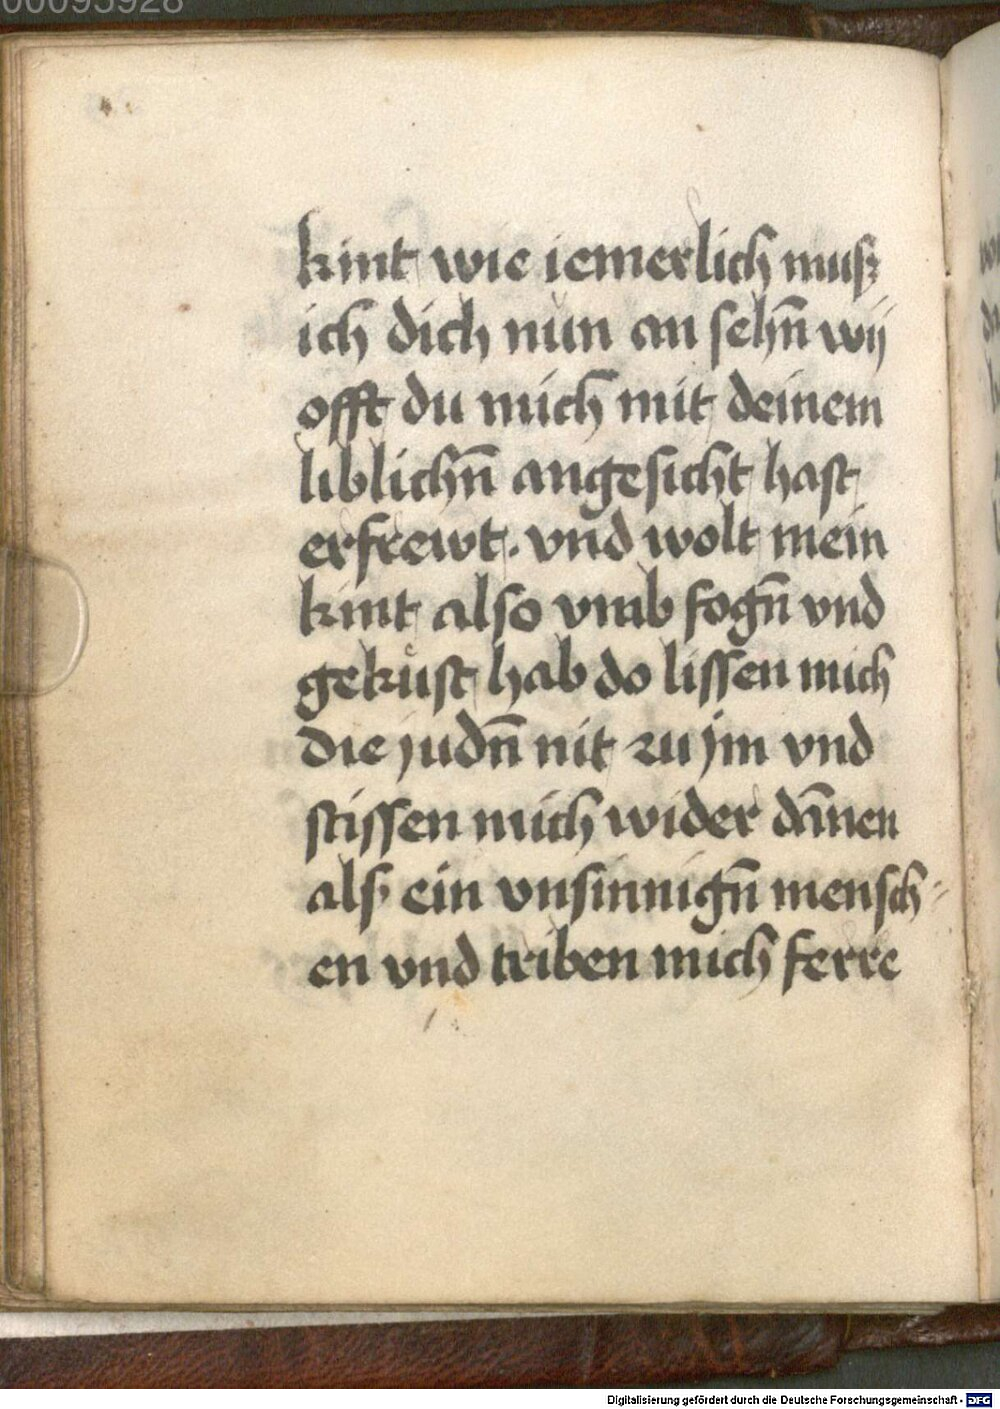 00095928
kint wie iemerlich muſz
ich dich nun an ſehn̄ wij
offt du mich mit deinem
liblichn̄ angeſicht haſt
erfrewt. vnd wolt mein
kint alſo vmb fogn̄ vnd
gekuͤſt hab do liſſen mich
die judn̄ nit zu jm vnd
ſtiſſen mich wider dan̄en
alſz ein vnſinnign̄ menſch⸗
en vnd triben mich ferre
Digitalisierung gefördert durch die Deutsche Forschungsgemeinschaft - DFG